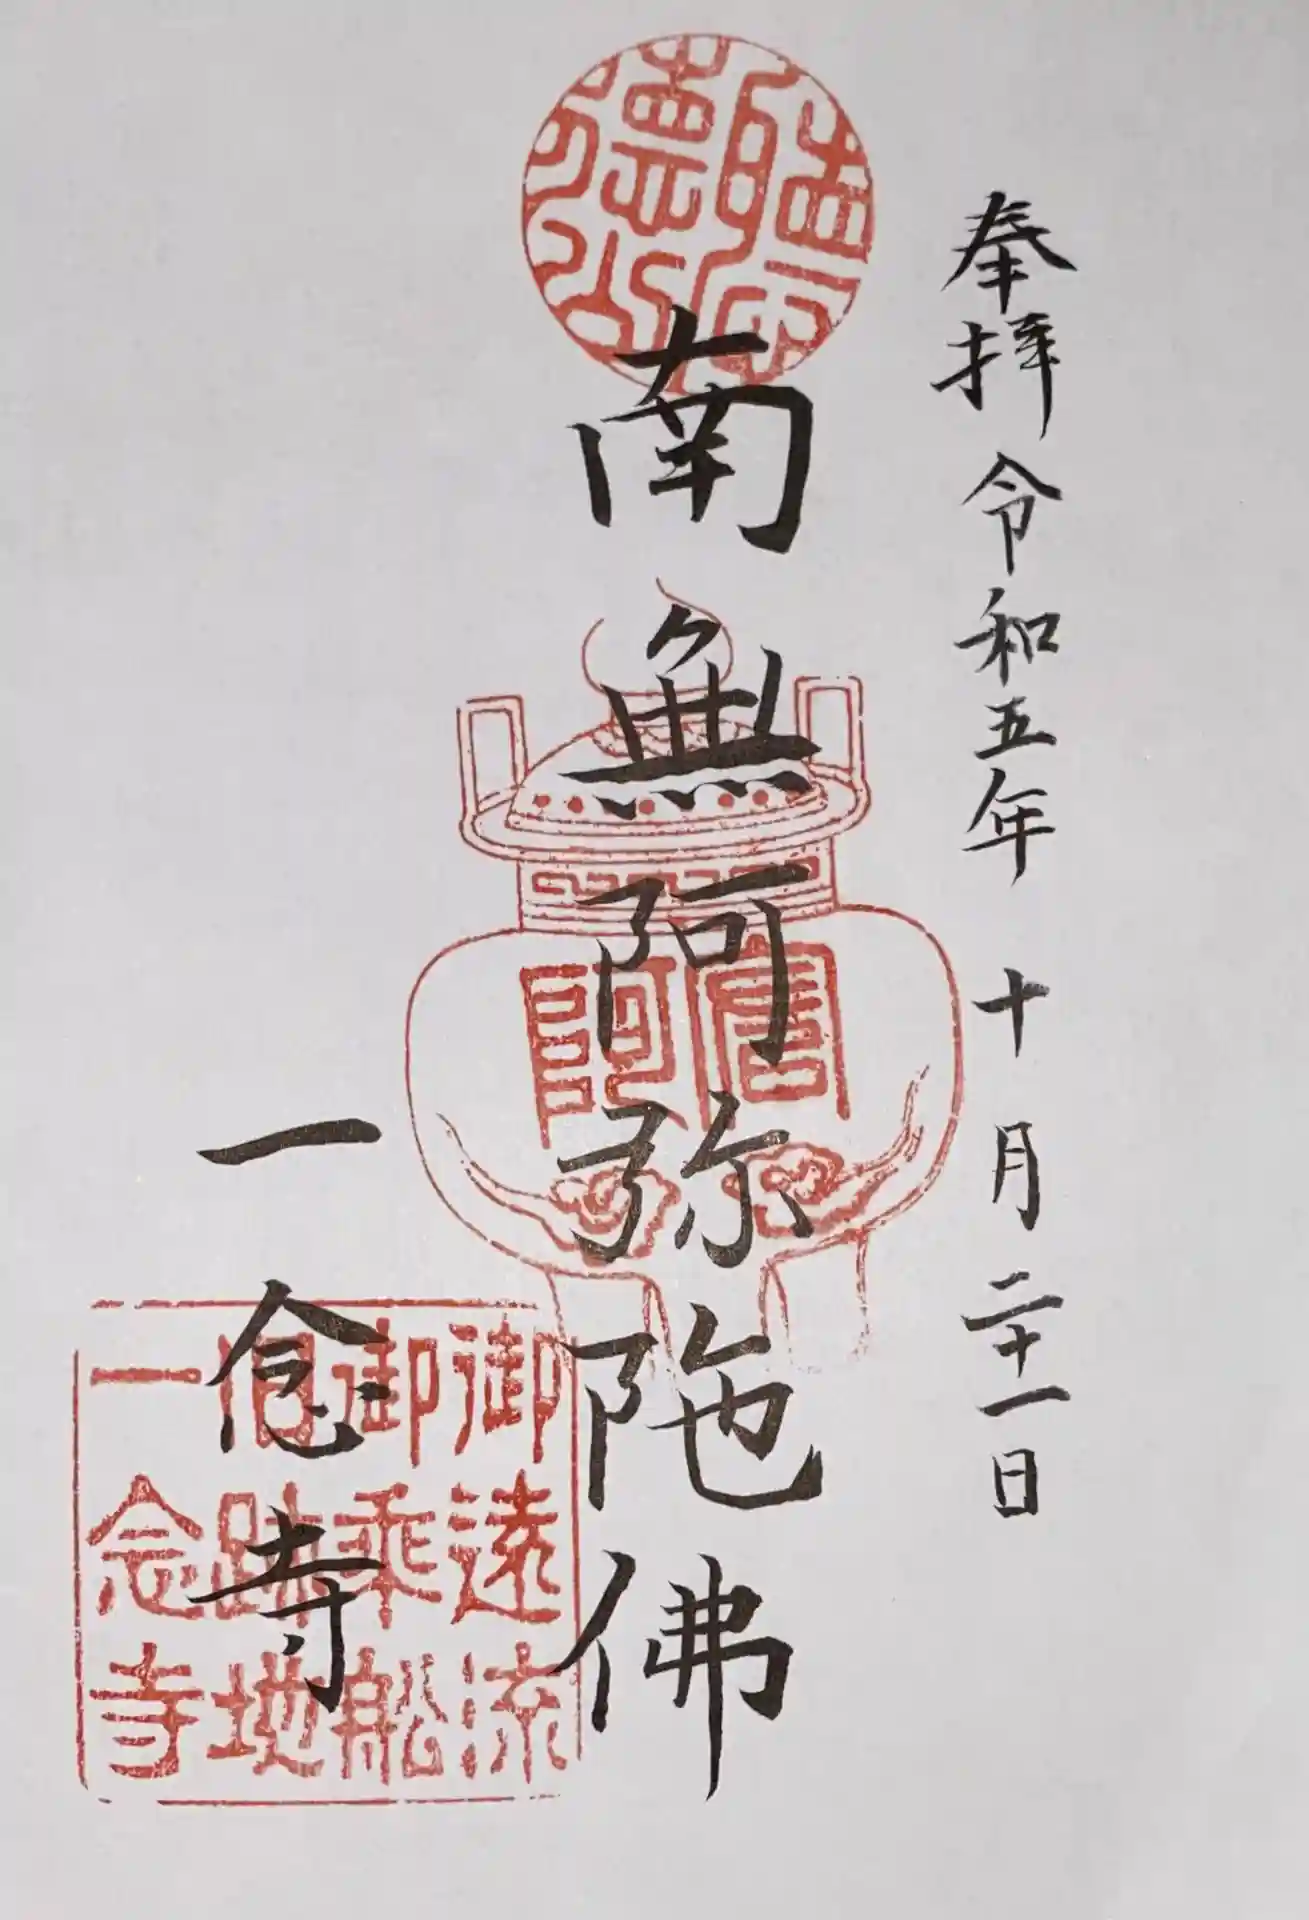 奉拝 令和五年 十月二十一日
南無阿弥陁佛
一念寺
御遠流
御乗船
旧跡地
一念寺